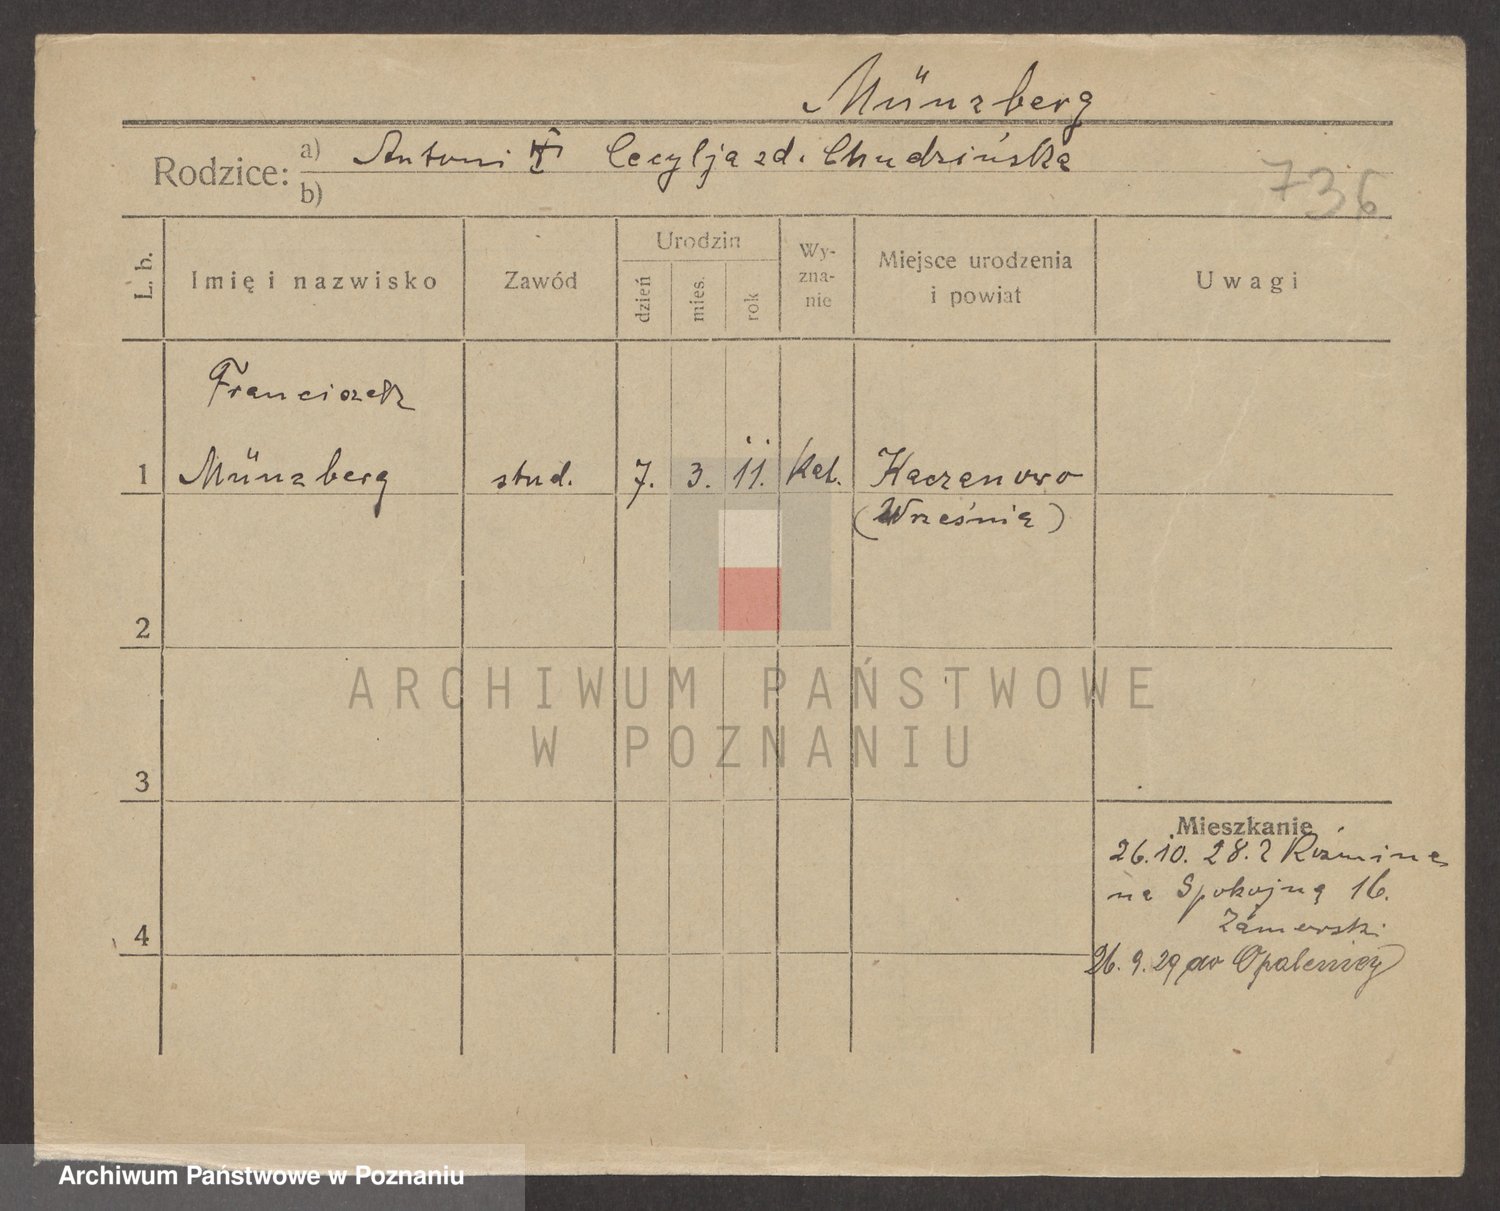 Münzberg
Rodzice: a) Antoni Cecylja zd. Chudzińska
b)
736
L. b.
Imię i nazwisko
Zawód
Urodzin
dzień
mies.
rok
Wy-
zna-
nie
Miejsce urodzenia
i powiat
Uwagi
Franciszek
1 Münzberg stud. 7. 3. 11. kat. Kaczanowo
(Września)
2
ARCHIWUM PAŃSTWOWE
W POZNANIU
3
Mieszkanie
26.10. 28. z Koźmina
na Spokojną 16.
4
26. 9. 29 do Opalenicy
Archiwum Państwowe w Poznaniu